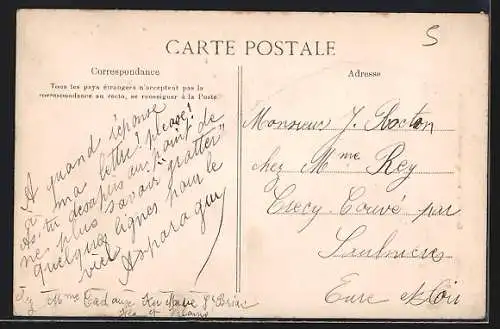 CARTE POSTALE
5
Correspondance
Tous les pays étrangers n'acceptent pas la
correspondance au recto, se renseigner à la Poste
A quand réponse
à ma lettre please?
As-tu désappris au point de
ne plus savoir "gratter"
quelques lignes pour le
vieil
Asparagus
Adresse
Monsieur J.
chez Mme Rey
Crécy-Couvé par
Saulnières
Eure et Loir